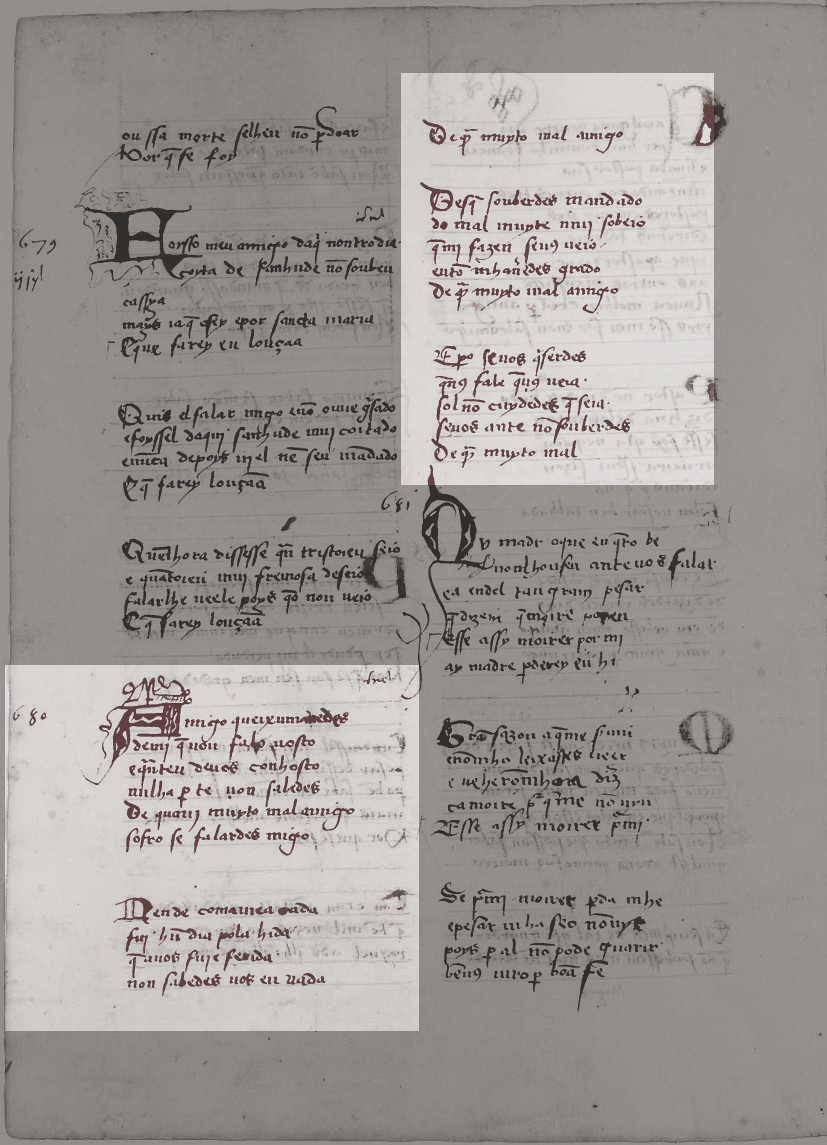 ou ssa morte selheu nõ ꝑdoar
Por q̃ se foy
679
Foysso meu amigo daq̃ nontrodia
coyta de sanhude nõ souben
cassya
mays iaq̃ osey epor sancta maria
Eque farey eu louçaa
Quis el falar migo enõ ouue g̃sado
efoyssel daqui sanhude mui coitado
enũca depoys ui el nẽ seu mãdado
E q̃ farey louçaã
Quẽlhora dissesse quã tristoieu seio
e quãtoieu mui fremosa deseio
falarlhe ueele poys q̃o non ueio
E q̃ farey louçaã
680
Amigo queixum
demi q̃ non falo uosco
equãteu deuos conhosco
nulha ꝑ te non sabedes
De quam muyto mal amigo
sofro se falardes migo
Nende comamea cada
fui hũ dia pola hida
q̃ auos fui e ferida
non sabedes uos en nada
De q̃ muyto mal amigo
Desq̃ souberdes mandado
do mal muyte mui sobeio
q̃mi fazen seu9 ueio
entõ mhauedes grado
De q̃ muyto mal amigo
E ꝑo se uos q̃serdes
q̃u9 fale q̃u9 ueia
sol nõ cuydedes q̃ seia
seuos ante nõ souberdes
De q̃ muyto mal
681
Ou madr oque eu q̃ro be
nonlhousen ante uos falar
ea endel tan gram pesar
q̃ dizem q̃ moire poren
Esse assy moirer por mi
ay madre ꝑderey eu hi
Gran sazon a q̃me seruiu
enõmho leixastes ueer
e ueherõmhora diz̃
ca moire ꝑq̃ me nõ uyu
Esse assy moirer ꝑmi
Se ꝑmi moirer ꝑda mhe
epesar mha seo nõ uyr
poys ꝑ al nõ pode guarir
bẽu9 iuro ꝑ boã fe